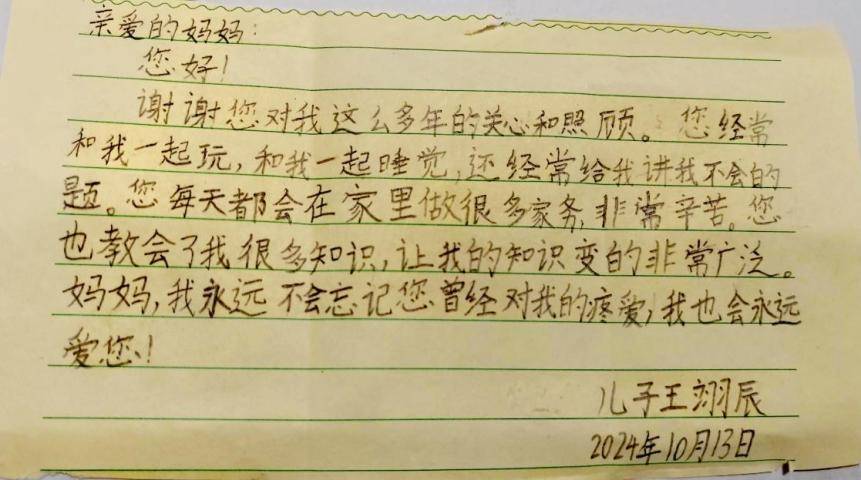 亲爱的妈妈:
您好!
谢谢您对我这么多年的关心和照顾。您经常
和我一起玩,和我一起睡觉,还经常给我讲我不会的
题。您每天都会在家里做很多家务,非常辛苦。您
也教会了我很多知识,让我的知识变的非常广泛。
妈妈,我永远不会忘记您曾经对我的疼爱,我也会永远
爱您!
儿子王翊辰
2024年10月13日